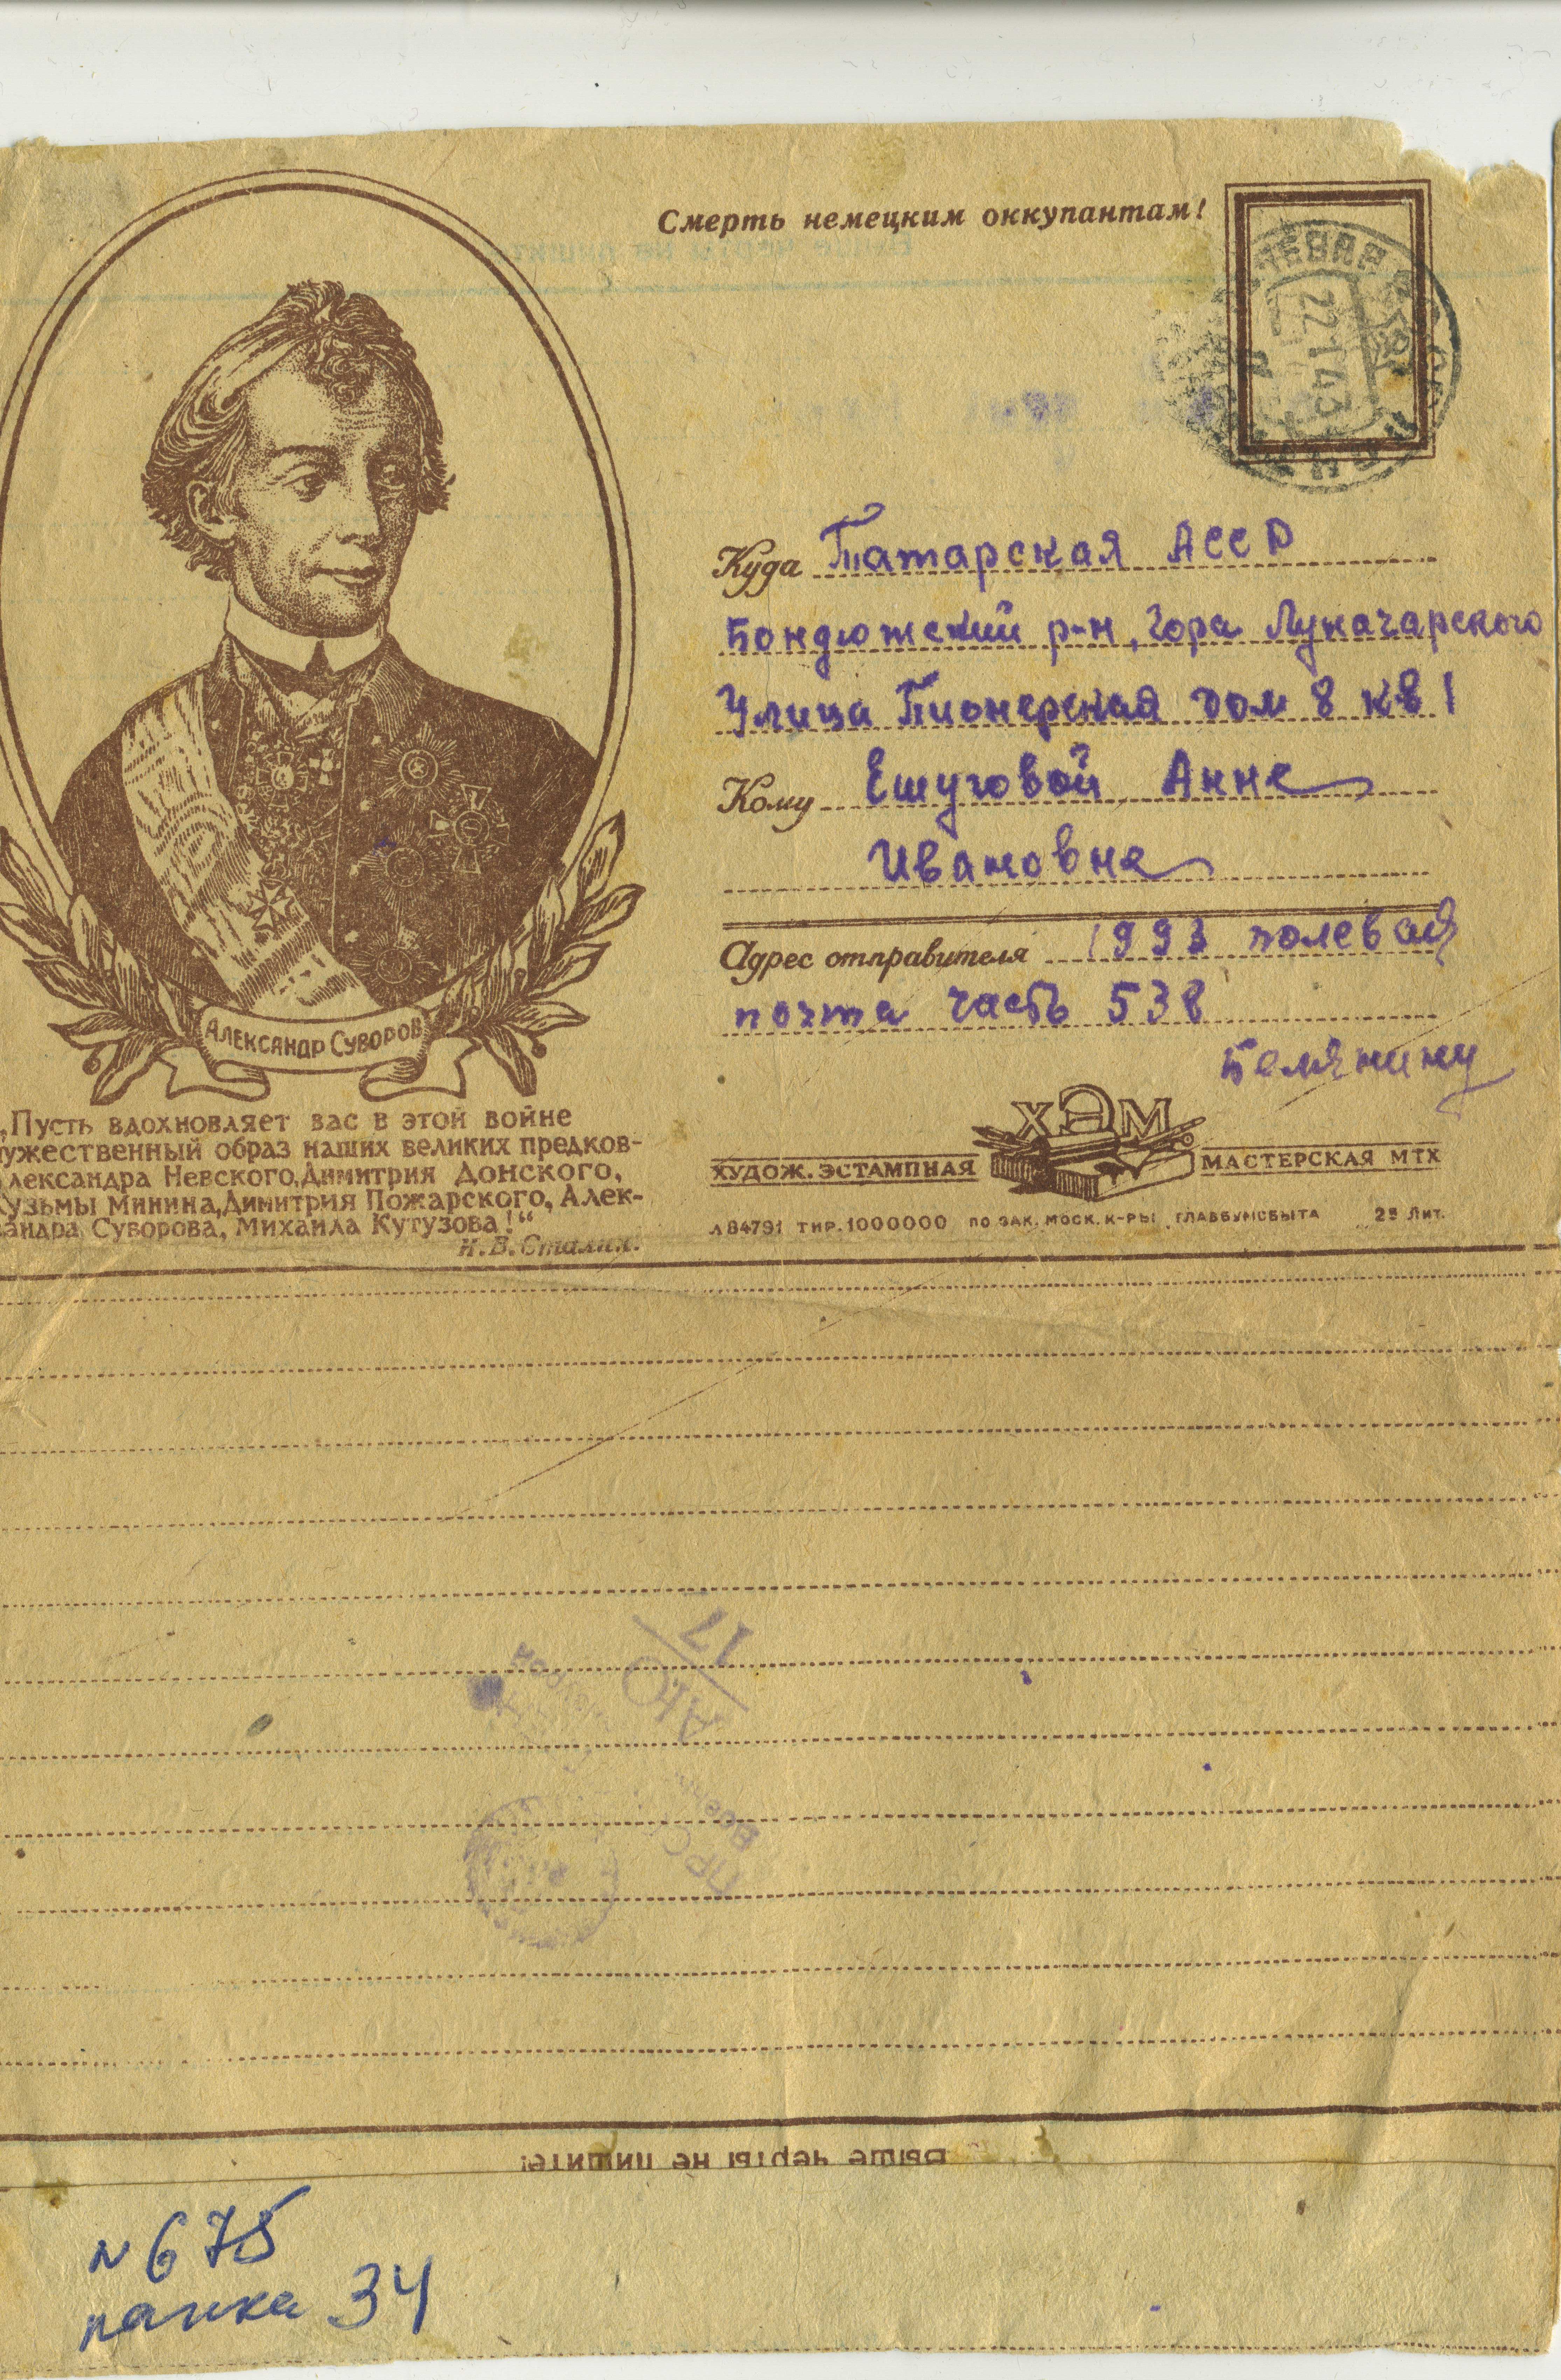 Смерть немецким оккупантам!
22 1 43
Куда Татарская АССР
Бондюжский р-н, Гора Луначарского
Улица Пионерская дом 8 кв 1
Кому Ешуговой Анне
Ивановне
Адрес отправителя 1993 полевая
почта часть 538
Белянину
АЛЕКСАНДР СУВОРОВ
„Пусть вдохновляет вас в этой войне
мужественный образ наших великих предков-
Александра Невского, Димитрия Донского,
Кузьмы Минина, Димитрия Пожарского, Алек-
сандра Суворова, Михаила Кутузова!“
И. В. Сталин.
ХЭМ
ХУДОЖ. ЭСТАМПНАЯ МАСТЕРСКАЯ МТХ
Л84791 ТИР. 1000000 ПО ЗАК. МОСК. К-РЫ ГЛАВБУМСБЫТА 25 Лит.
17
Выше черты не пишите!
N 675
папка 34